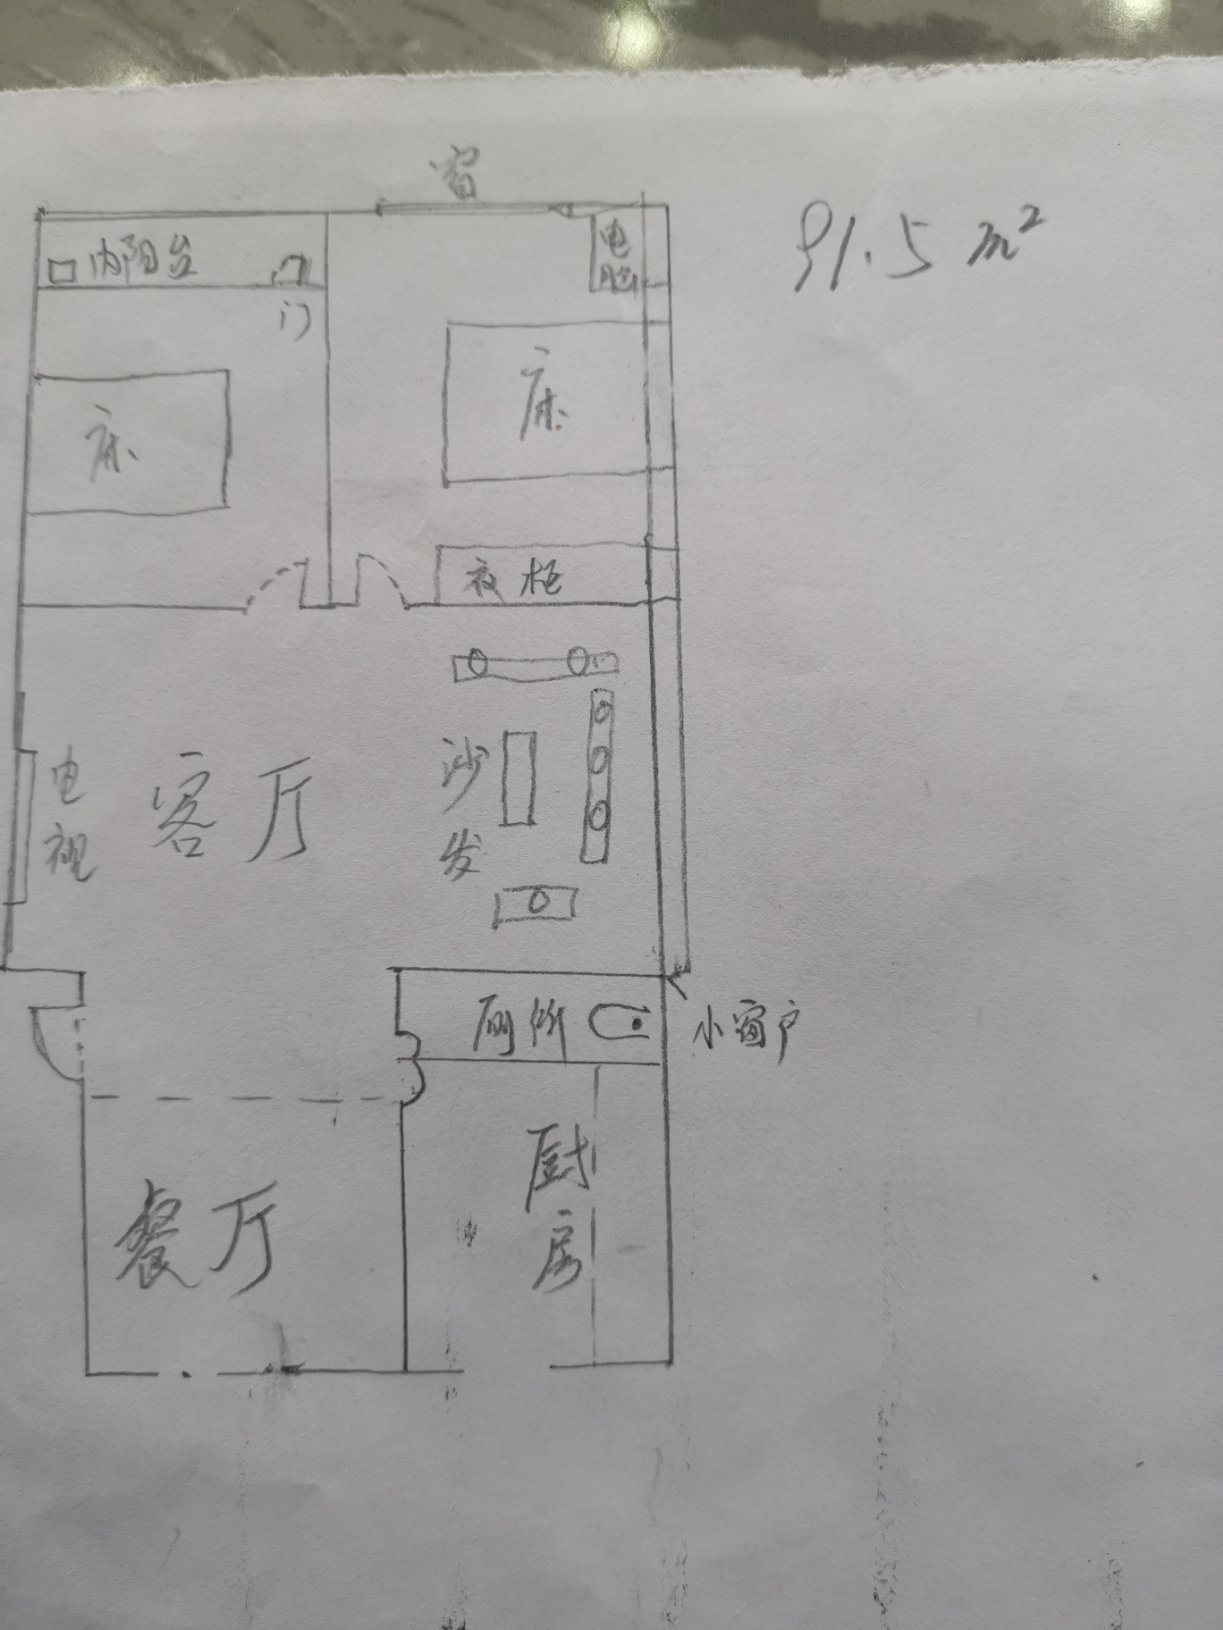 窗
91.5 m²
内阳台
门
电脑
床
床
衣柜
电视
客厅
沙发
厕所
小窗户
厨房
餐厅